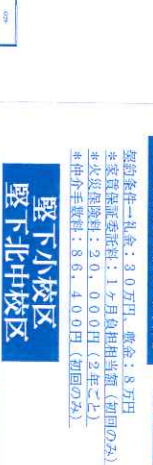 契約条件→礼金：30万円、敷金：8万円
＊家賃保証委託料：1ヶ月負担相当額（初回のみ）
＊火災保険料：20，000円（2年ごと）
＊仲介手数料：86，400円（初回のみ）
堅下小校区
堅下北中校区